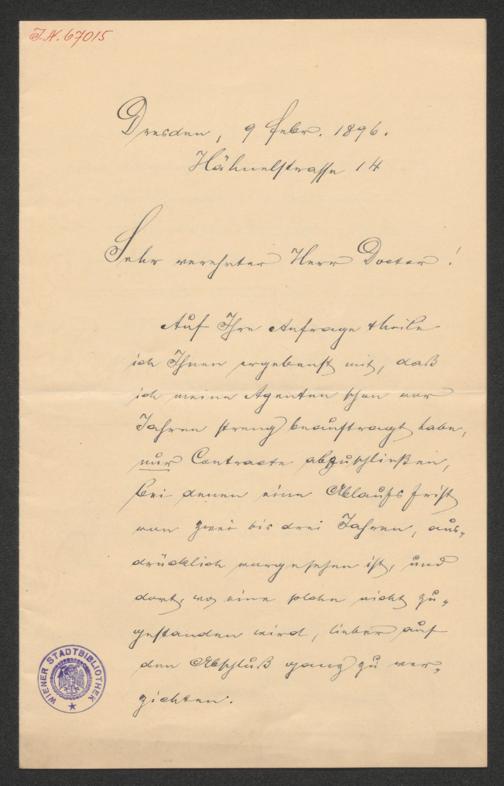 I.N. 67015
Dresden, 9 Febr. 1896.
Hähnelstrasse 14
Sehr verehrter Herr Doctor!
Auf Ihre Anfrage theile
ich Ihnen ergebenst mit, daß
ich meine Agenten schon vor
Jahren streng beauftragt habe,
nur Contracte abzuschließen,
bei denen eine Ablaufsfrist
von zwei bis drei Jahren, aus-
drücklich vorgesehen ist, und
dort, wo eine solche nicht zu-
gestanden wird, lieber auf
den Abschluß ganz zu ver-
zichten.
WIENER STADTBIBLIOTHEK